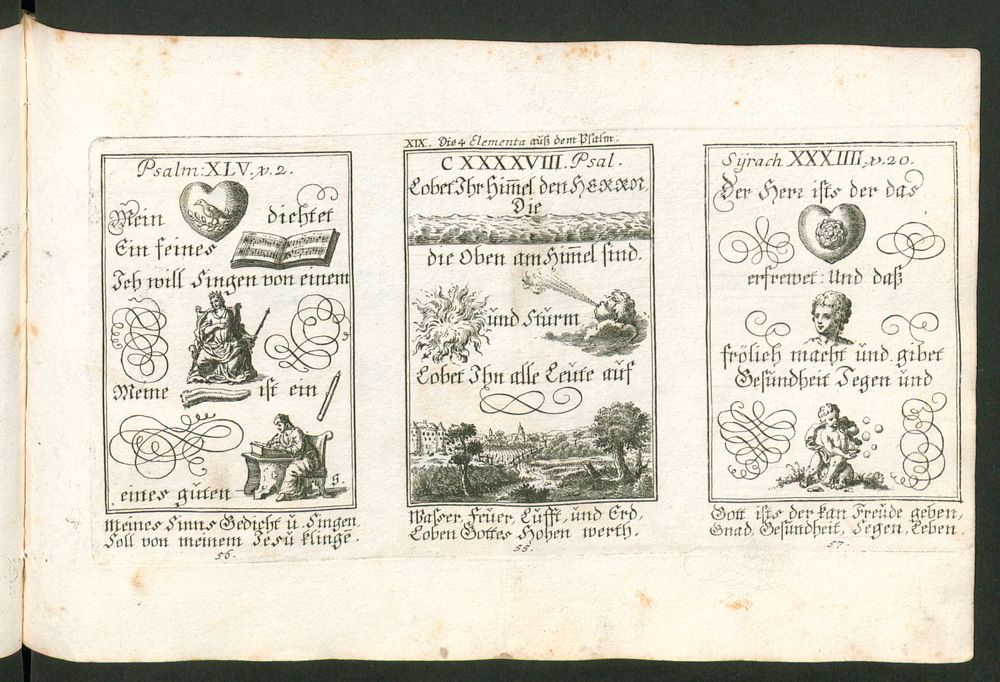 Psalm: XLV. v. 2.
Mein dichtet
Ein feines
Ich will Singen von einem
Meine ist ein
eines guten s.
Meines Sinns Gedicht u. Singen
Soll von meinem Jesu klingē
56.
XIX. Die 4 Elementa auß dem Psalm.
CXXXXVIII. Psal.
Lobet Ihr Him̄el den HERRN,
Die
die Oben am Him̄el sind.
und Sturm
Lobet Ihn alle Leute auf
Wasser, Feuer, Lufft, und Erd,
Loben Gottes Hohen werth.
55.
Syrach XXXIIII. v. 20.
Der Herr ists der das
erfrewet: Und daß
frölich macht und gibet
Gesundheit Segen und
Gott ists der kan Freude geben,
Gnad, Gesundheit, Segen, Leben.
57.